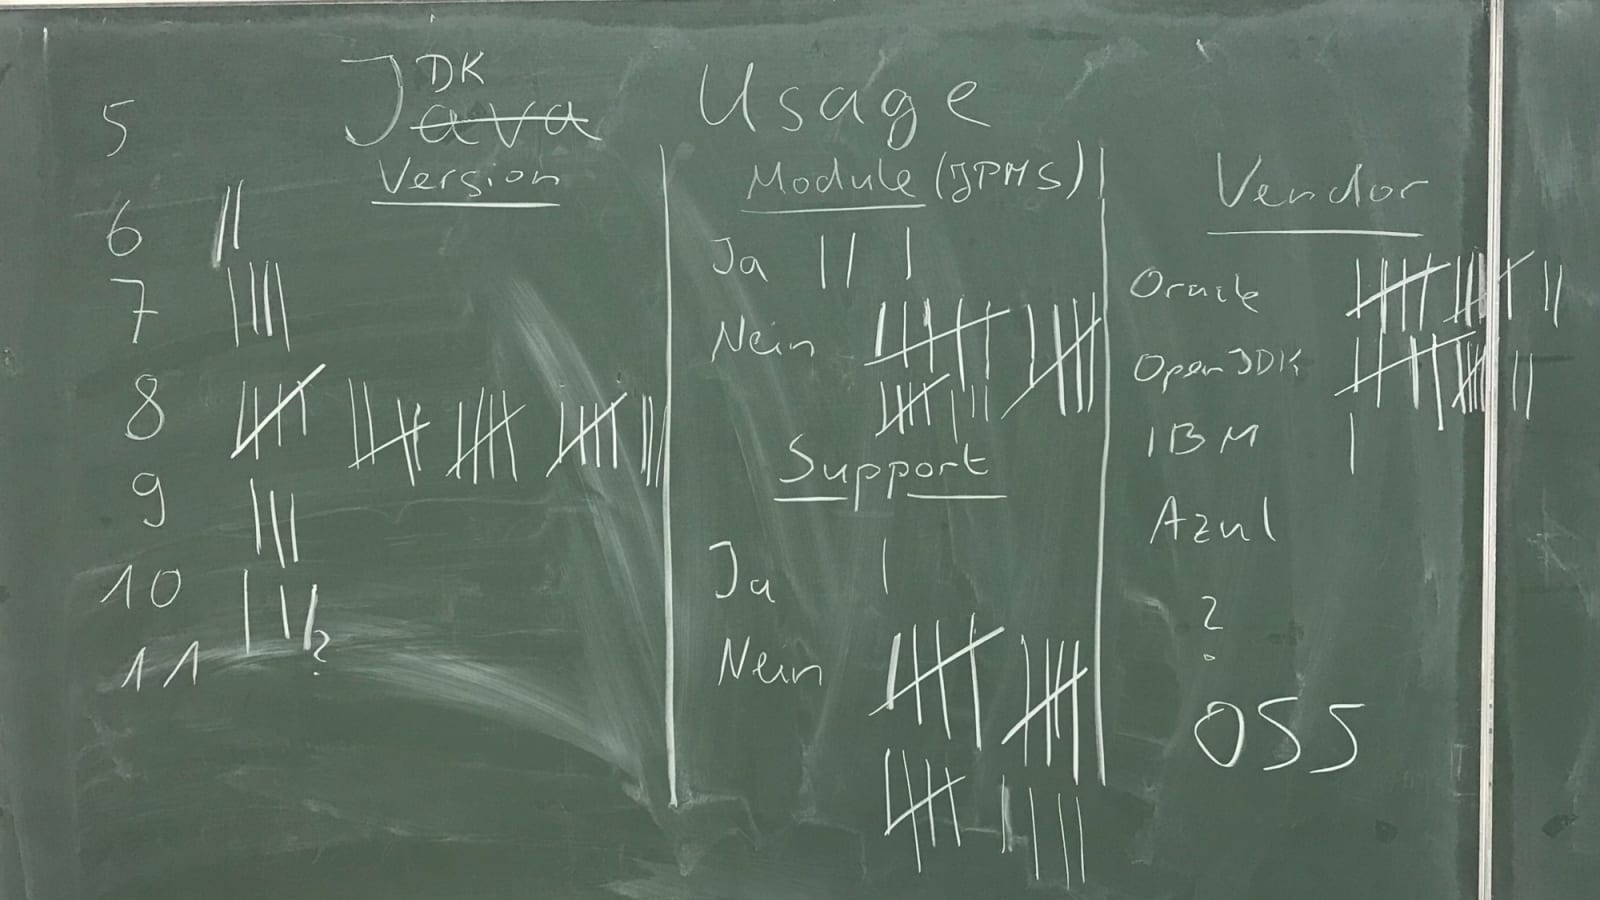 JDK Usage
Java
Version
5
6 ||
7 ||||
8
9 |||
10 |||
11 ?
Module (JPMS)
Ja |||
Nein
Support
Ja |
Nein
Vendor
Oracle
OpenJDK
IBM |
Azul
?
OSS